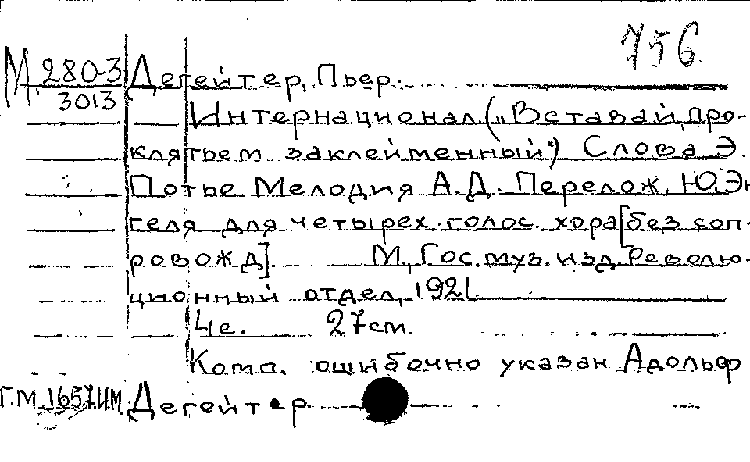 756
М 280-3 Дегейтер, Пьер.
3013
Интернационал („Вставай, про-
клятьем заклейменный“) Слова Э.
Потье Мелодия А.Д. Перелож. Ю.Эн
геля для четырех-голос. хора [без соп-
ровожд]. М., Гос. муз. изд. Револю-
ционный отдел, 1921
4с. 27см.
Комп. ошибочно указан Адольф
Г.М. 1657ИМ Дегейтер